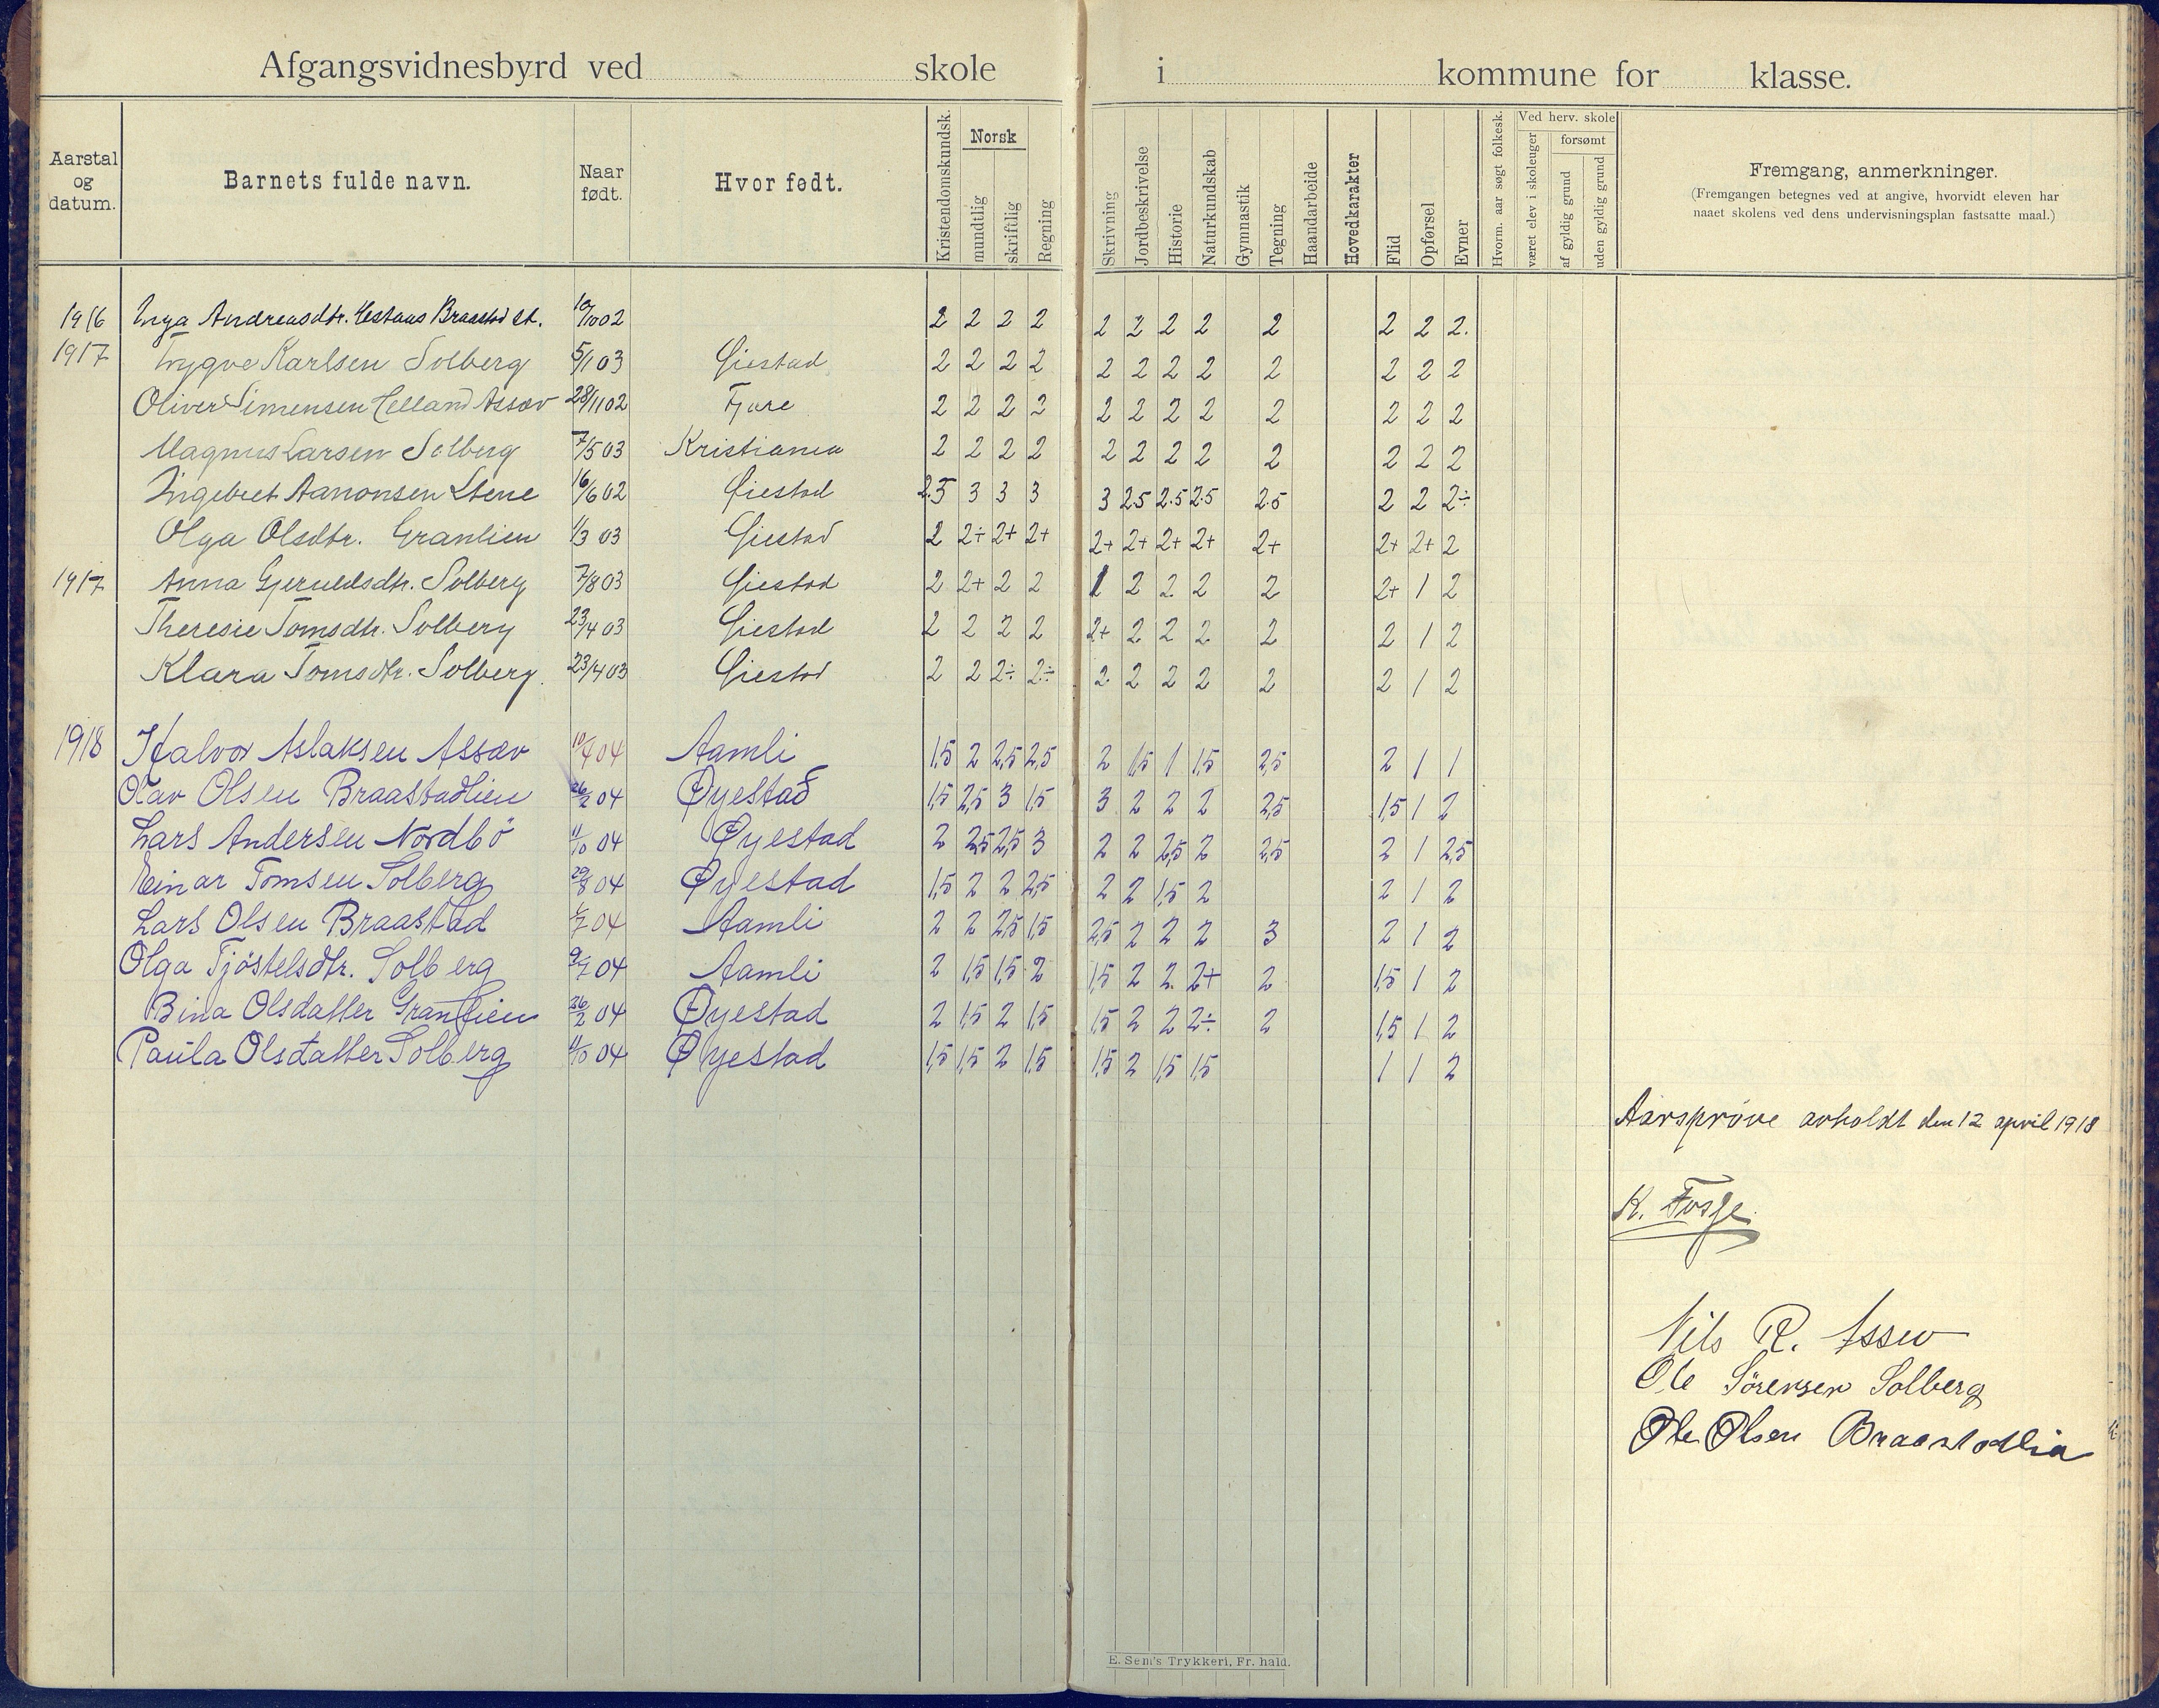 Afgangsvidnesbyrd ved skole i kommune for klasse.
Aarstal og datum.
Barnets fulde navn.
Naar født.
Hvor født.
Kristendomskundsk.
Norsk
mundtlig
skriftlig
Regning
Skrivning
Jordbeskrivelse
Historie
Naturkundskab
Gymnastik
Tegning
Haandarbeide
Hovedkarakter
Flid
Opførsel
Evner
Hvorm. aar søgt folkesk.
Ved herv. skole
været elev i skoleuger
forsømt
af gyldig grund
uden gyldig grund
Fremgang, anmerkninger.
(Fremgangen betegnes ved at angive, hvorvidt eleven har
naaet skolens ved dens undervisningsplan fastsatte maal.)
1916 Inga Andreasdtr. Braastad 10/10 02 2 2 2 2 2 2 2 2 2 2 2 2.
1917 Trygve Karlsen Solberg 5/1 03 Øiestad 2 2 2 2 2 2 2 2 2 2 2 2
Oliver Simensen Helland Assev 28/11 02 Fjære 2 2 2 2 2 2 2 2 2 2 2 2
Magnus Larsen Solberg 7/5 03 Kristiania 2 2 2 2 2 2 2 2 2 2 2 2
Ingebret Aanonsen Stene 16/6 02 Øiestad 2.5 3 3 3 3 2.5 2.5 2.5 2.5 2 2 2÷
Olga Olsdtr. Granlien 1/3 03 Øiestad 2 2÷ 2+ 2+ 2+ 2+ 2+ 2+ 2+ 2+ 2+ 2
1917 Anna Gjeruldsdtr. Solberg 7/8 03 Øiestad 2 2+ 2 2 1 2 2 2 2 2+ 1 2
Theresie Tomsdtr. Solberg 23/4 03 Øiestad 2 2 2 2 2+ 2 2 2 2 2 1 2
Klara Tomsdtr. Solberg. 23/4 03 Øiestad 2 2 2÷ 2÷ 2 2 2 2 2 2 1 2
1918 Halvor Aslaksen Assev 10/4 04 Aamli 1,5 2 2,5 2,5 2 1,5 1 1,5 2,5 2 1 1
Olav Olsen Braastadlien 26/2 04 Øyestad 1,5 2,5 3 1,5 3 2 2 2 2,5 1,5 1 2
Lars Andersen Nordbö 11/10 04 Øyestad 2 2,5 2,5 3 2 2 2,5 2 2,5 2 1 2,5
Einar Tomsen Solberg 29/8 04 Øyestad 1,5 2 2 2,5 2 2 1,5 2 2 1 2
Lars Olsen Braastad 04 Aamli 2 2 2,5 1,5 2,5 2 2 2 3 2 1 2
Olga Tjöstelsdtr. Solberg 9/7 04 Aamli 2 1,5 1,5 2 1,5 2 2 2+ 2 1,5 1 2
Bina Olsdatter Granlien 26/2 04 Øyestad 2 1,5 2 1,5 1,5 2 2 2÷ 2 1,5 1 2
Paula Olsdatter Solberg 11/10 04 Øyestad 1,5 1,5 2 1,5 1,5 2 1,5 1,5 1 1 2
Aarsprøve avholdt den 12 april 1918
K. Fosse.
Nils R. Assev
Ole Sörensen Solberg
Ole Olsen Braastadlia
E. Sem's Trykkeri, Fr.hald.